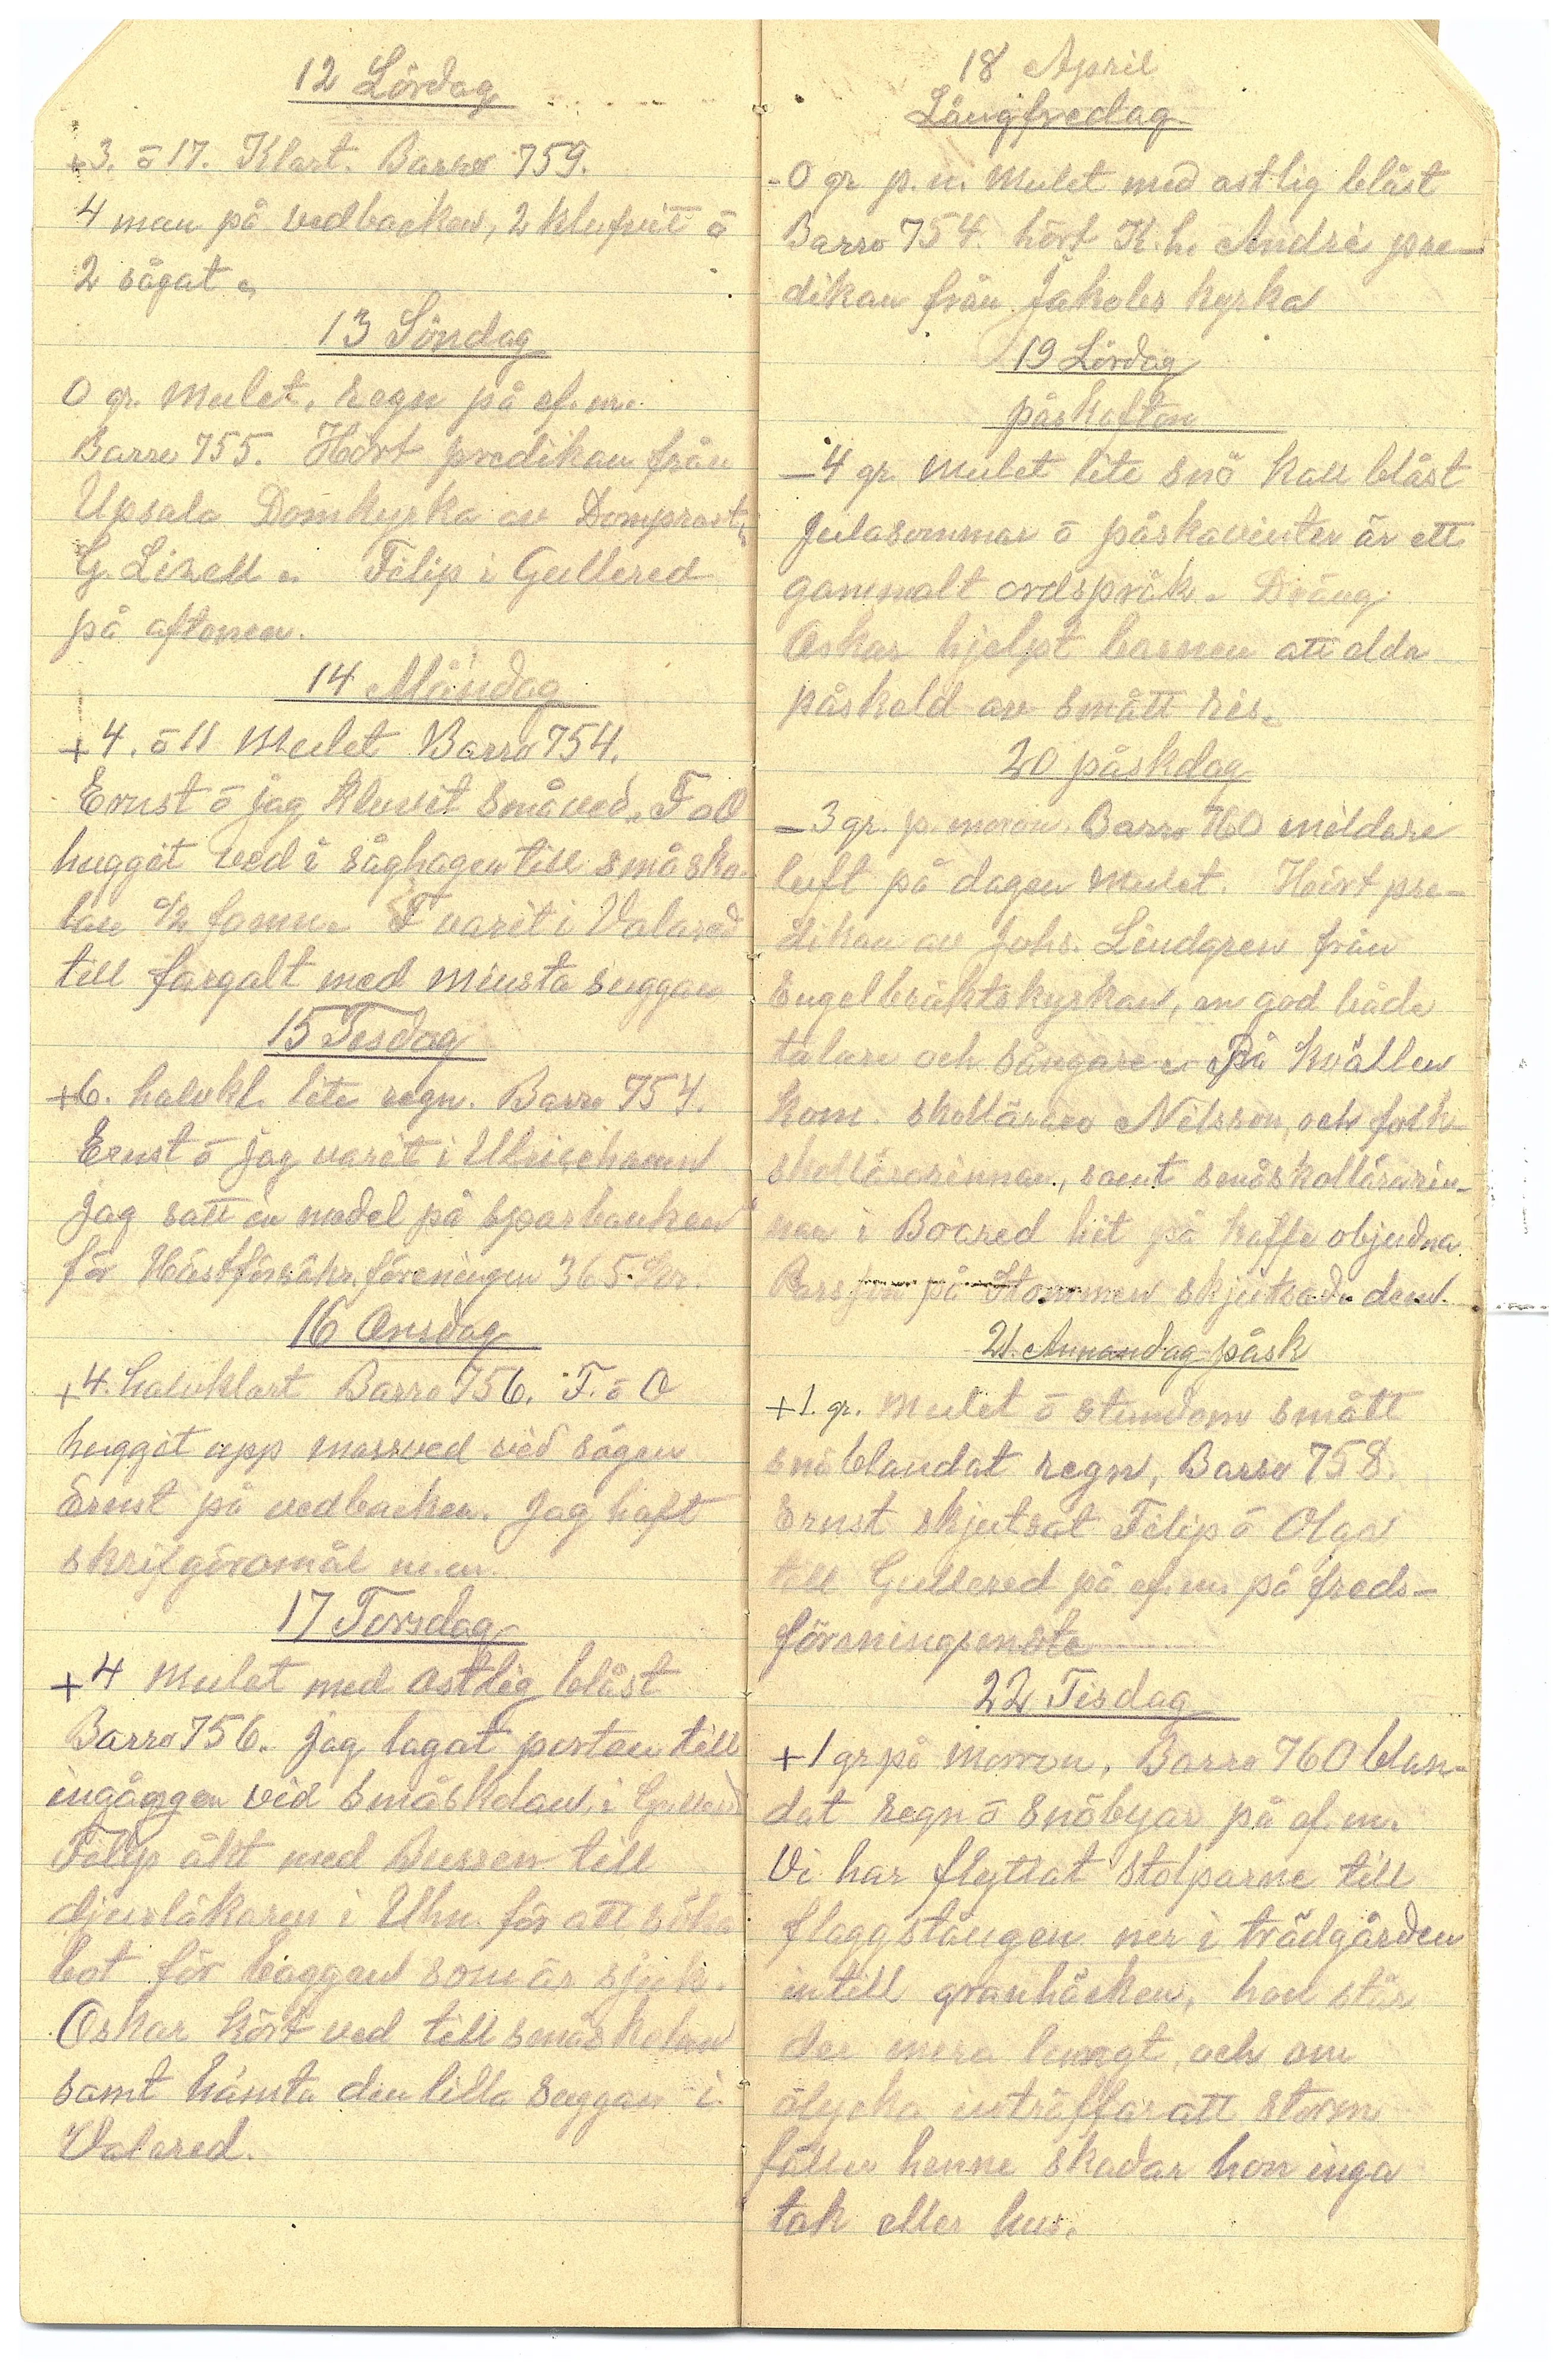 12 Lördag
+3. ō 17. Klart. Barro 759.
4 man på vedbacken, 2 klufvit ō
2 sågat.
13 Söndag
0 gr. Mulet. Regn på ef.m.
Barro 755. Hört predikan från
Upsala Domkyrka av Domprost
G. Lizell. Filip i Gullered
på aftonen.
14 Måndag
+4. ō 11 Mulet Barro 754.
Ernst ō jag kluvit småved. F o O
huggit ved i såghagen till småsko-
lan famn. F varit i Valared
till fargalt med minsta suggan
15 Tisdag
+6. halvkl. lite regn. Barro 754.
Ernst ō jag varit i Ulricehamn
jag satt in medel på sparbanken
för Hästförsäkr.föreningen 365 kr.
16 Onsdag
+4. halvklart Barro 756. F. ō O
huggit upp massved vid sågen
Ernst på vedbacken. Jag haft
skrifgöromål m.m.
17 Torsdag
+4 Mulet med ostlig blåst
Barro 756. Jag lagat porten till
ingången vid småskolan i Gullered
Filip åkt med Bussen till
djurläkaren i Uhn. för att söka
bot för baggen som är sjuk.
Oskar kört ved till småskolan
samt hämta den lilla suggan i
Valared.
18 April
Långfredag
-0 gr p. m. Mulet med ostlig blåst
Barro 754. hört K. h. André pre-
dikan från Jakobs kyrka
19 Lördag
påskafton
-4 gr. Mulet lite snö kall blåst
Julasommar ō påskavinter är ett
gammalt ordspråk. Dräng
Oskar hjelpt barnen att elda
påskeld av smått ris.
20 påskdag
-3 gr. p. moron. Barro 760 mildare
luft på dagen Mulet. Hört pre-
dikan av Johs. Lindgren från
Engelbräktskyrkan, en god både
talare och sångare. På kvällen
kom skollärare Nilsson, och folk-
skollärarinnan, samt småskollärarin-
nan i Boared hit på kaffe objudna
på Stommen skjutsade dem.
21. Annandag påsk
+1. gr. Mulet ō stundom smått
snöblandat regn, Barro 758.
Ernst skjutsat Filip ō Olga
till Gullered på ef.m. på freds-
föreningsmöte
22 Tisdag
+1 gr på morron, Barro 760 blan-
dat regn ō snöbyar på ef.m.
Vi har flyttat stolparne till
flaggstången ner i trädgården
intill granhäcken, hon står
der mera lungt, och om
olycka inträffar att storm
fäller henne skadar hon inga
tak eller hus.